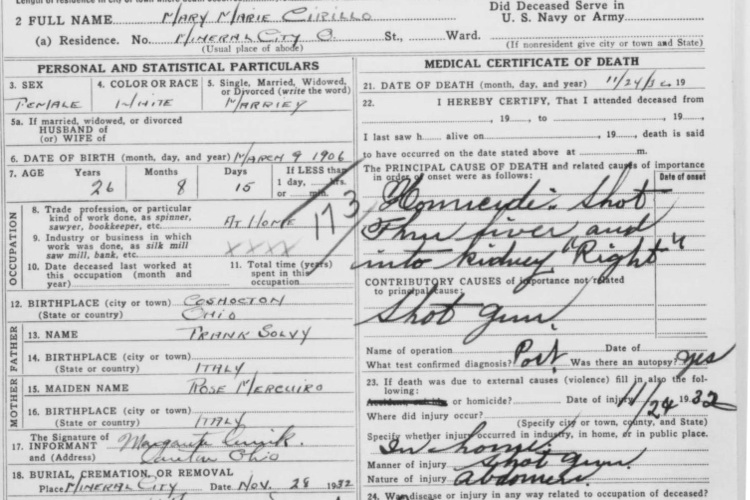 2 FULL NAME MARY MARIE CIRILLO
Did Deceased Serve in
U. S. Navy or Army
(a) Residence. No. MINERAL CITY O. St., Ward.
(Usual place of abode)
(If nonresident give city or town and State)
PERSONAL AND STATISTICAL PARTICULARS
3. SEX
FEMALE
4. COLOR OR RACE
WHITE
5. Single, Married, Widowed,
or Divorced (write the word)
5a. If married, widowed, or divorced
HUSBAND of
(or) WIFE of
6. DATE OF BIRTH (month, day, and year) MARCH 9 1906
7. AGE Years Months Days If LESS than
1 day, hrs.
26 8 15 or min.
173
OCCUPATION
8. Trade, profession, or particular
kind of work done, as spinner,
sawyer, bookkeeper, etc. AT HOME
9. Industry or business in which
work was done, as silk mill
saw mill, bank, etc. XXXX
10. Date deceased last worked at
this occupation (month and
year)
11. Total time (years)
spent in this
occupation
12. BIRTHPLACE (city or town) COSHOCTON
(State or country) OHIO
FATHER
13. NAME FRANK SOLVY
14. BIRTHPLACE (city or town)
(State or country) ITALY
MOTHER
15. MAIDEN NAME ROSE
16. BIRTHPLACE (city or town)
(State or country) ITALY
17. The Signature of
INFORMANT
and (Address) Canton Ohio
18. BURIAL, CREMATION, OR REMOVAL
Place MINERAL CITY Date NOV. 28 1932
MEDICAL CERTIFICATE OF DEATH
21. DATE OF DEATH (month, day, and year) 11/24/32 19
22. I HEREBY CERTIFY, That I attended deceased from
, 19 , to , 19 ,
I last saw h alive on , 19 , death is said
to have occurred on the date stated above at m.
The PRINCIPAL CAUSE OF DEATH and related causes of importance
in order of onset were as follows:
Date of onset
Homicide. Shot
Thru liver and
into kidney "Right"
CONTRIBUTORY CAUSES of importance not related
to principal cause:
Shot gun.
Name of operation Date of
What test confirmed diagnosis? Post. Was there an autopsy? yes
23. If death was due to external causes (violence) fill in also the fol-
lowing:
or homicide? Date of injury 11/24 1932
Where did injury occur?
(Specify city or town, county, and State)
Specify whether injury occurred in industry, in home, or in public place.
In home
Manner of injury Shot gun.
Nature of injury Abdomen.
24. Was disease or injury in any way related to occupation of deceased?